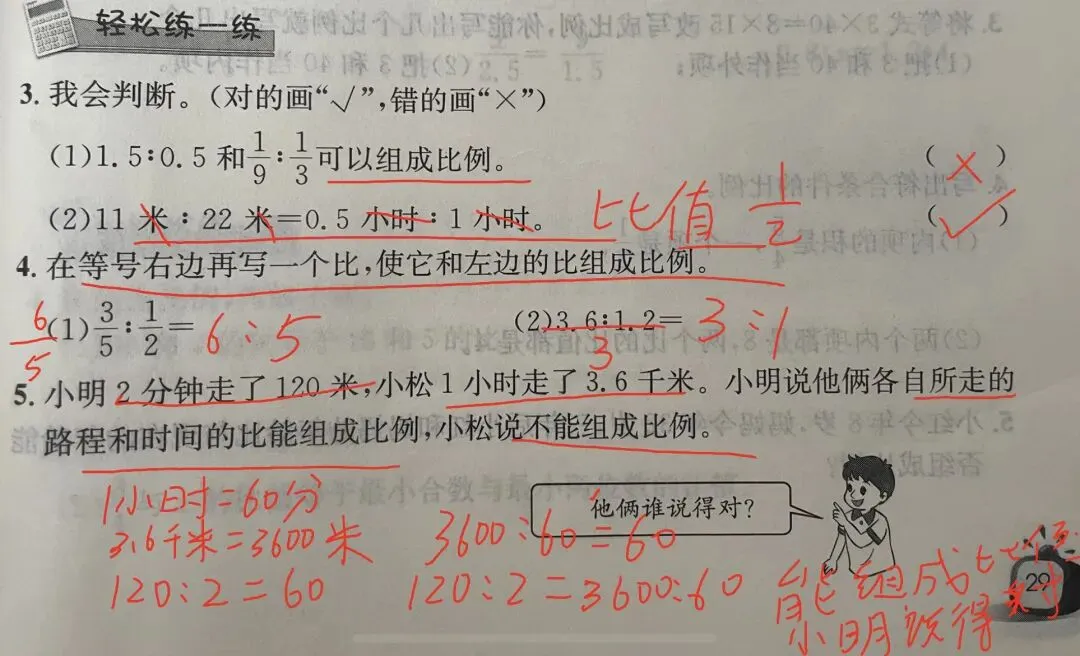 轻松练一练
3. 我会判断。(对的画“√”,错的画“×”)
(1)1.5∶0.5 和 1/9 ∶ 1/3 可以组成比例。 ( × )
(2)11 米∶22 米=0.5 小时∶1 小时。 比值 1/2 ( ✓ )
4. 在等号右边再写一个比,使它和左边的比组成比例。
6/5 (1) 3/5 ∶ 1/2 = 6∶5 (2)3.6∶1.2= 3∶1
3
5. 小明 2 分钟走了 120 米,小松 1 小时走了 3.6 千米。小明说他俩各自所走的
路程和时间的比能组成比例,小松说不能组成比例。
他俩谁说得对?
1小时=60分
3.6千米=3600米 3600∶60=60
120∶2=60 120∶2=3600∶60 能组成比例
小明说得对
29